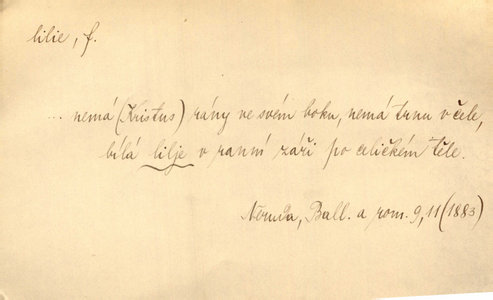 lilie, f.
... nemá (Kristus) rány ve svém boku, nemá trnu v čele,
bílá lilje v ranní záři po celičkém těle.
Neruda, Ball. a rom. 9, 11 (1883)